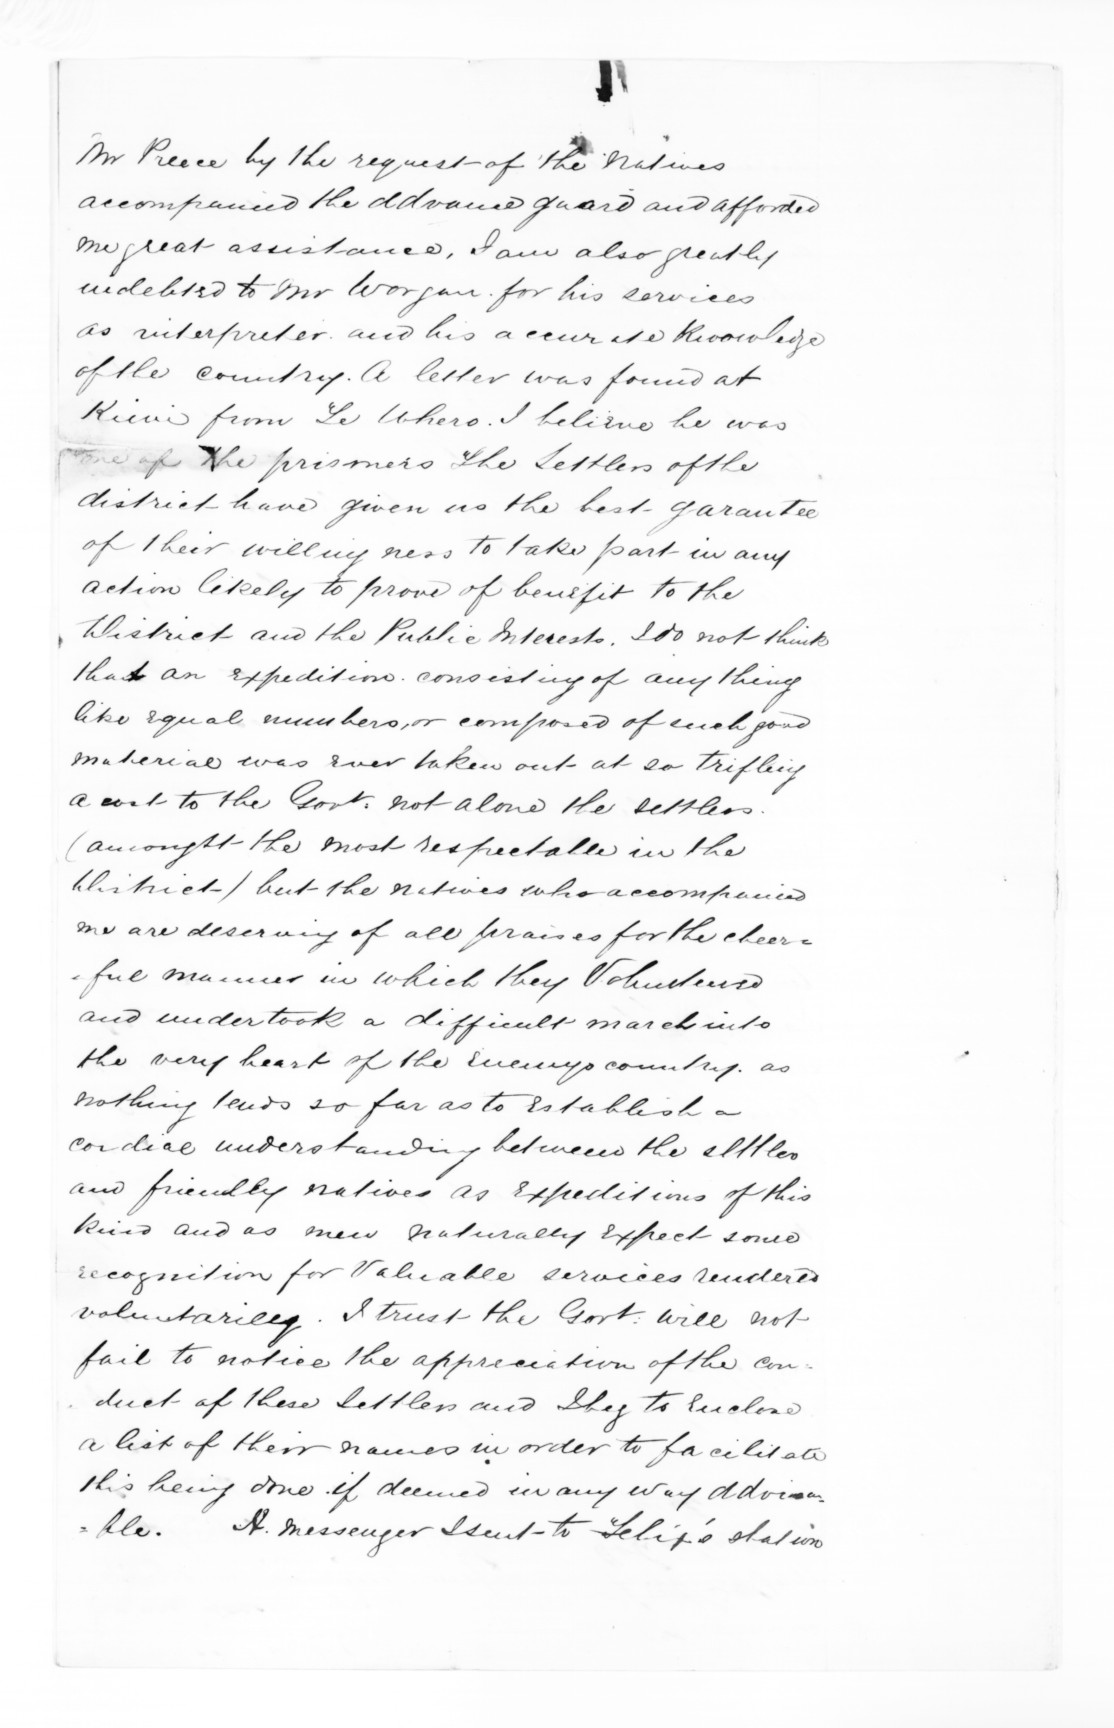 Mr Preece by the request of the Natives
accompanied the Advance guard and afforded
me great assistance, I am also greatly
indebted to Mr Worgan. for his services
as interpreter. and his accurate Knowledge
of the country. A letter was found at
from Te Whero. I believe he was
one of the prisoners The Settlers of the
district have given us the best garantee
of their willingness to take part in any
action likely to prove of benefit to the
District and the Public Interests. I do not think
that an Expedition. consisting of any thing
like Equal numbers, or composed of such good
material was Ever taken out at so trifling
a cost to the Govt. not alone the settlers.
(amongst the most respectable in the
District) but the natives who accompanied
me are deserving of all praises for the cheer=
=ful manner in which they Voluntered
and undertook a difficult march into
the very heart of the Enemys country. as
nothing tends so far as to Establish a
cordial understanding between the settler
and friendly natives as Expeditions of this
kind and as men naturally Expect some
recognition for Valuable services rendered
voluntarilly. I trust the Govt. will not
fail to notice the appreciation of the con=
duct of these Settlers and I beg to Enclose
a list of their names in order to facilitate
this being done if deemed in any way Advisa=
=ble. A. messenger I sent to station